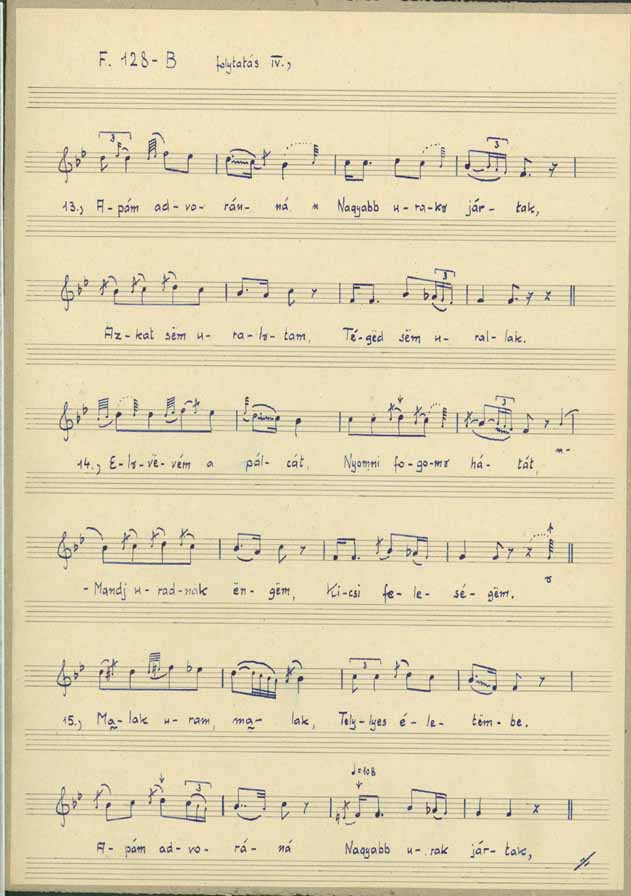 F. 128-B folytatás IV.,
3
3
13., A-pám ad-vo-rán-ná Nagyabb u-ra-kꝛ jár-tak,
3
Az-kat sëm u-ra-lꝛ-tam, Té-gëd sëm u-ral-lak.
3
14., E-lꝛ-vë-vém a pál-cát, Nyomni fo-go-mꝛ há-tát,
-Mandj u-rad-nak ën-gëm, Ki-csi fe-le-sé-gëm.
3
15., Ma-lak u-ram, ma-lak, Tely-lyes é-le-tëm-be.
3
♩=108
A-pám ad-vo-rá-ná Nagyabb u-rak jár-tak,